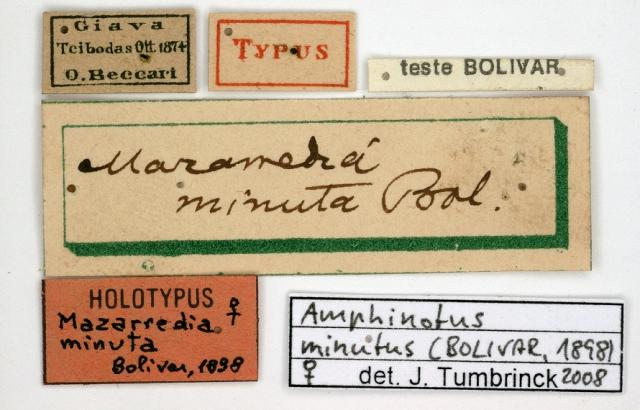 Giava
Tcibodas Ott. 1874
O. Beccari
TYPUS
teste BOLIVAR.
Mazarredia
minuta Bol.
HOLOTYPUS
Mazarredia ♀
minuta
Bolivar, 1898
Amphinotus
minutus (BOLIVAR, 1898)
♀ det. J. Tumbrinck 2008